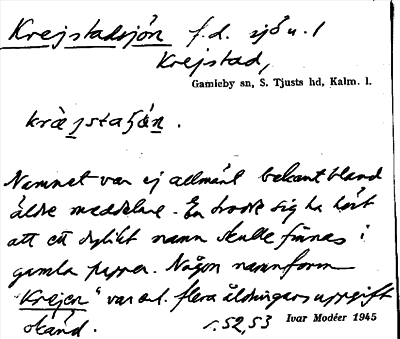 Krejstadsjön f.d. sjö u. l
Krejstad,
Gamleby sn, S. Tjusts hd, Kalm. l.
Namnet var ej allmänt bekant bland
äldre meddelare. En trodde sig ha hört
att ett dylikt namn skulle finnas i
gamla papper. Någon namnform
"Krejen" var enl. flera åldringars uppgift
okänd. r. 52, 53 Ivar Modéer 1945